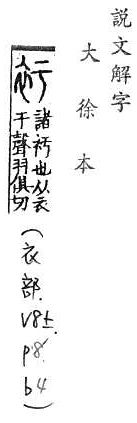 說文解字
大徐本
衧
諸衧也从衣
于聲羽俱切
(衣部.
V8上
p8.
b4)